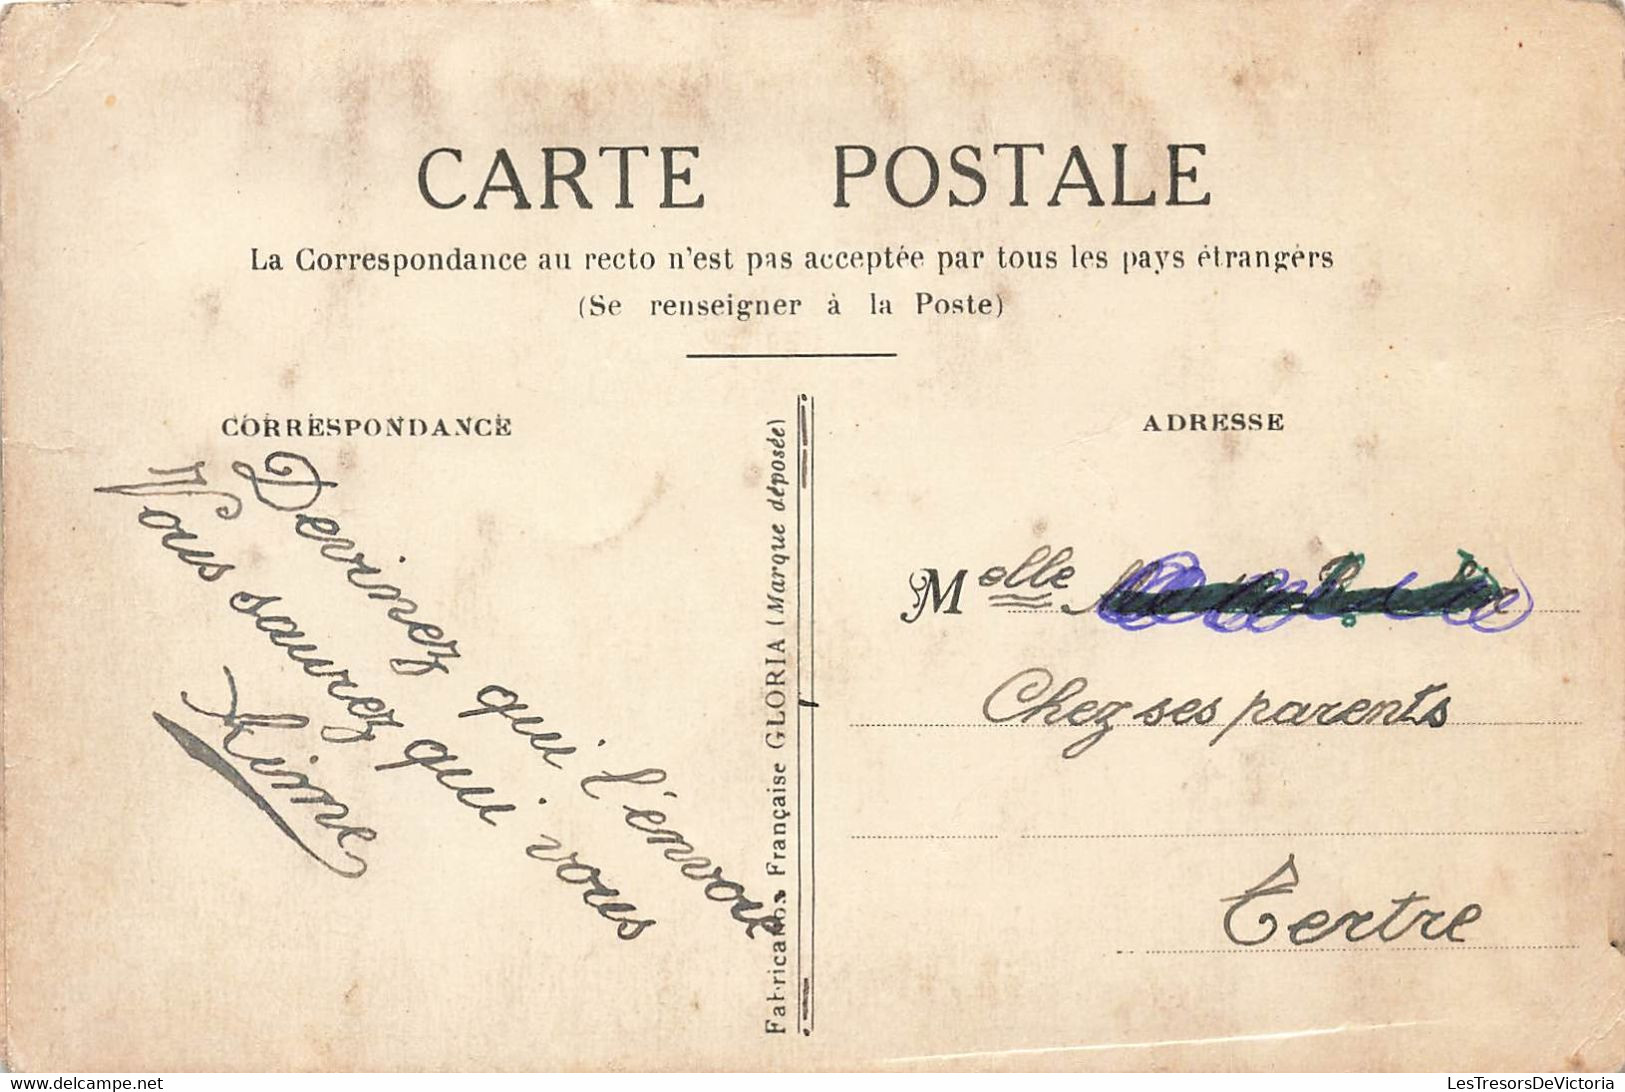 CARTE POSTALE
La Correspondance au recto n'est pas acceptée par tous les pays étrangers
(Se renseigner à la Poste)
CORRESPONDANCE
Devinez qui l'envoie
Vous saurez qui vous
Aime
Fabrication Française GLORIA (Marque déposée)
ADRESSE
Melle
Chez ses parents
Tertre
delcampe.net
LesTresorsDeVictoria